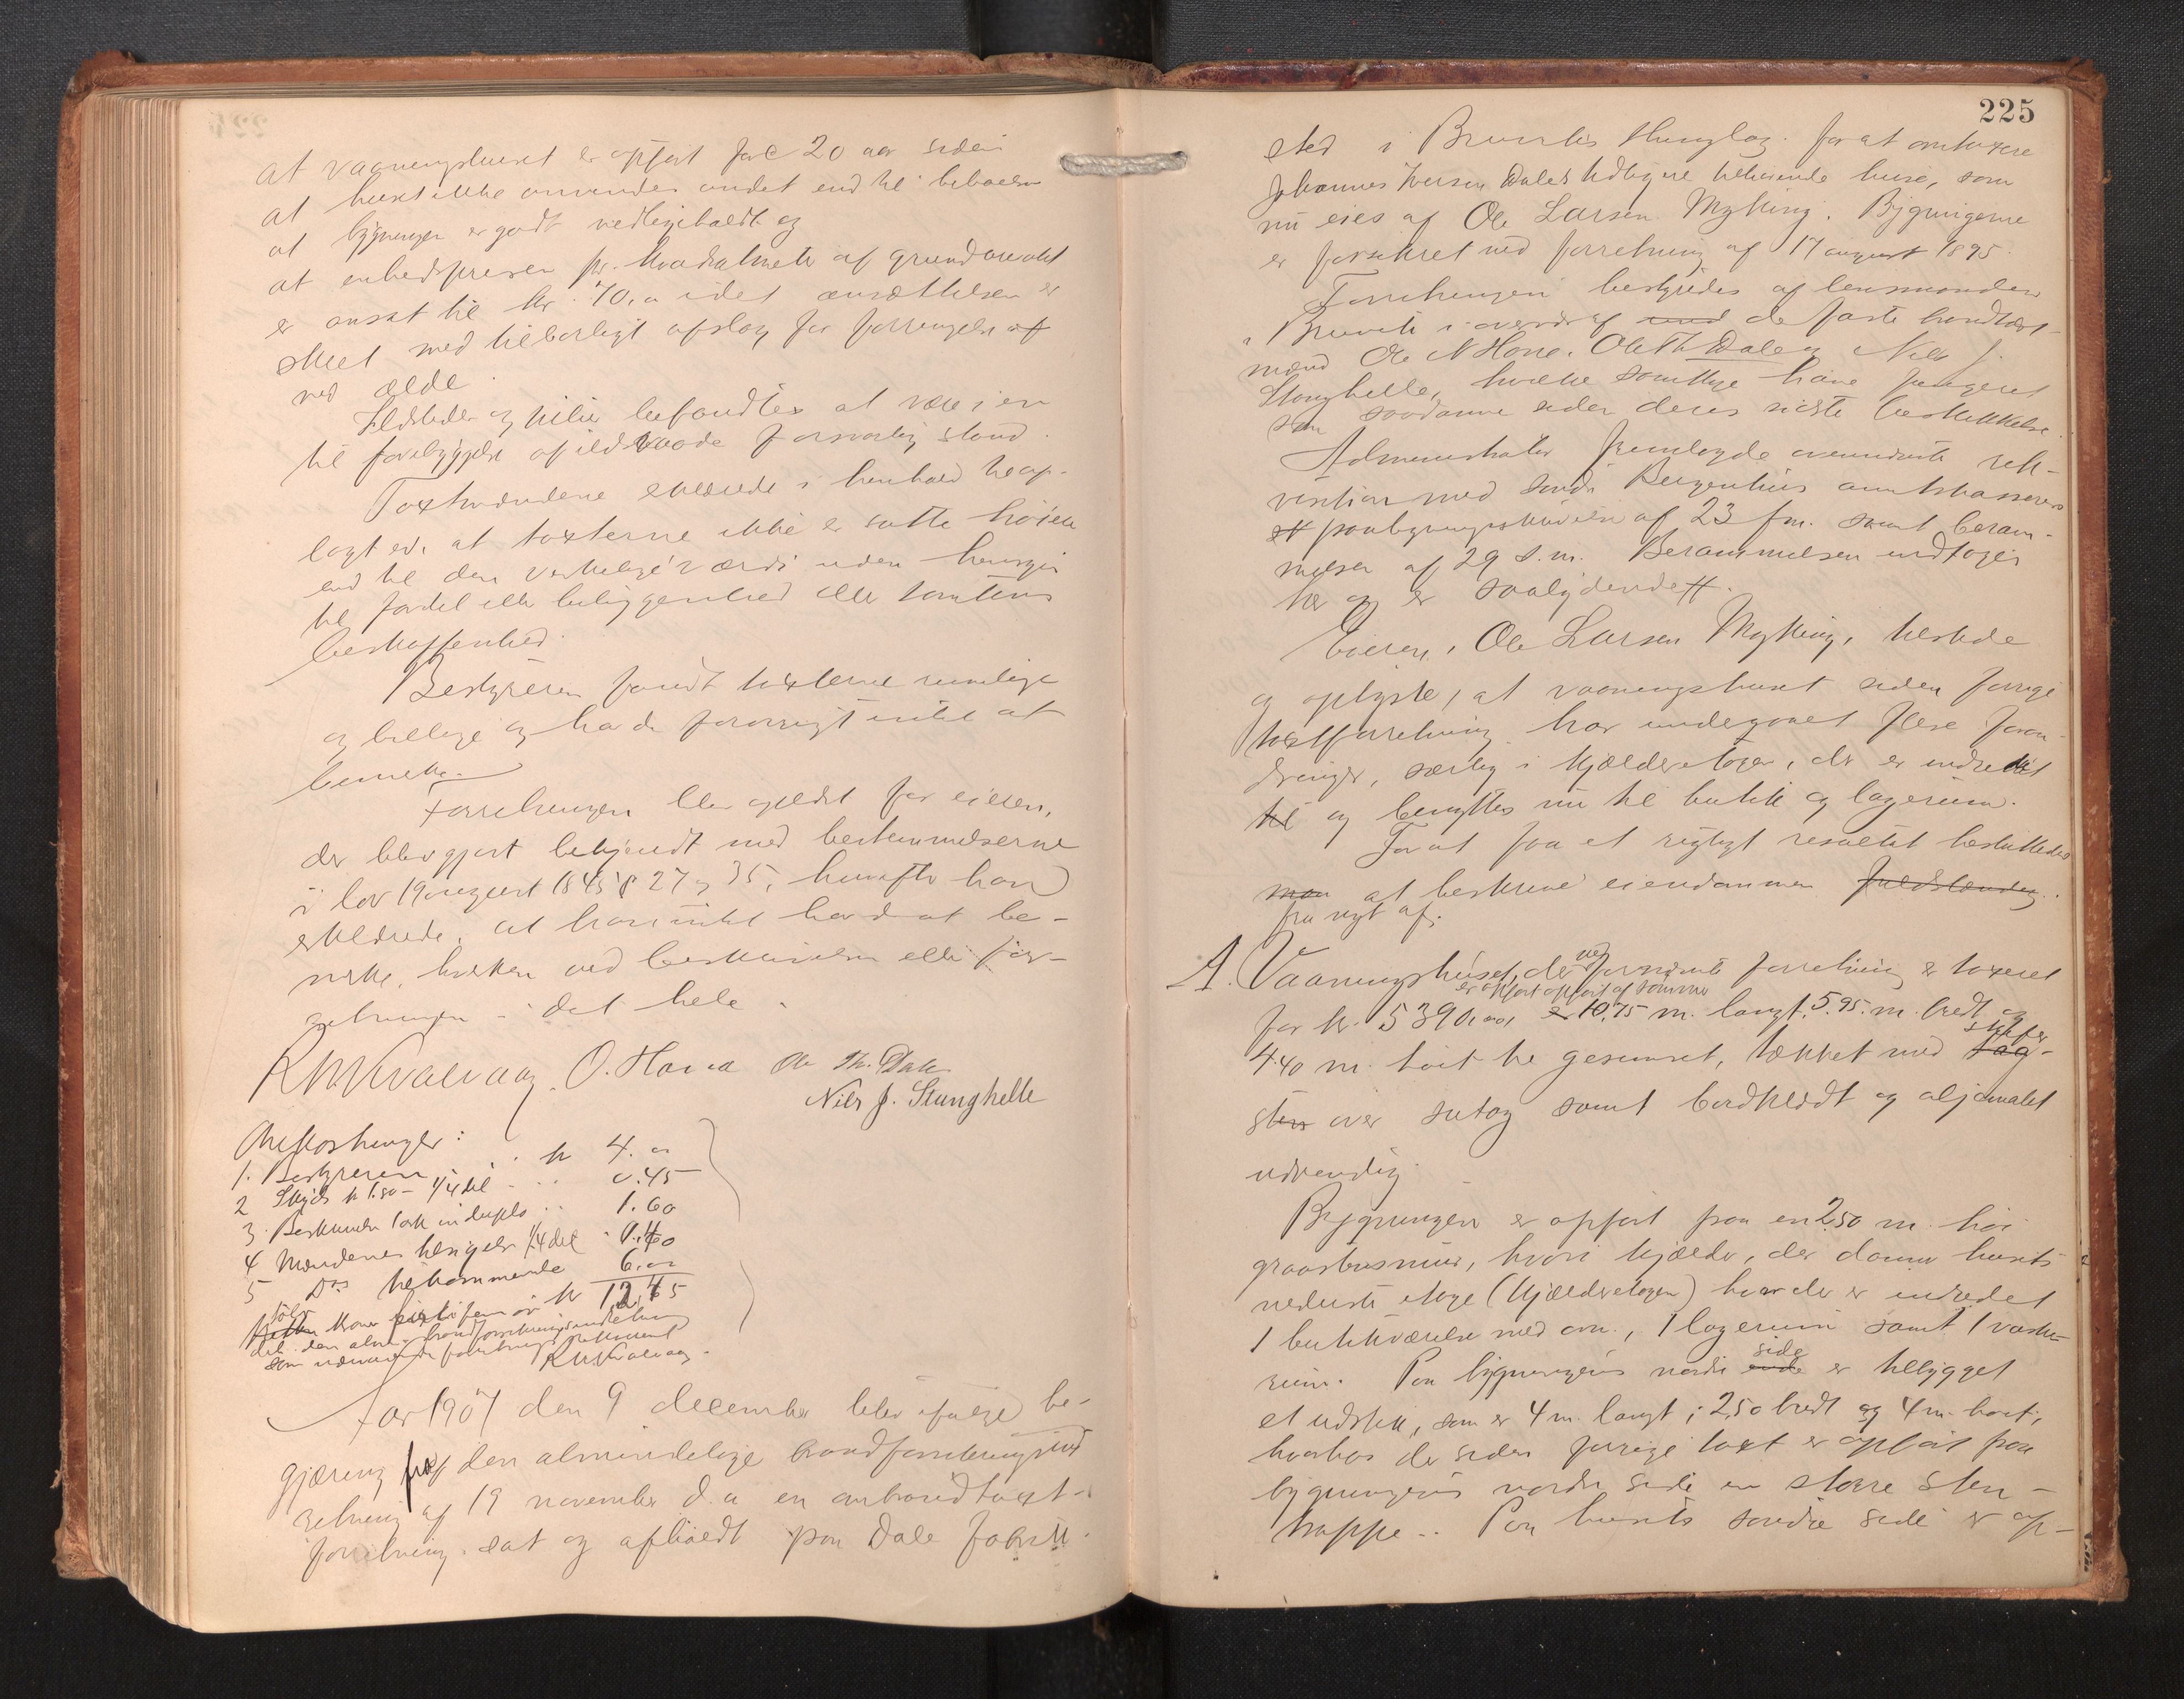 at vaaningshuset er opført for c 20 aar siden
at huset ikke anvendes andet end til beboelse
at bygningen er godt vedligeholdt og
at enhedsprisen pr. kvadratmeter af grundarealet
er ansat til kr. 70,00 idet ansættelsen er
skeet med tilbørligt afslag for forringelse af
ved ælde.
Ildsteder og piber befandtes at være i en
til forebyggelse af ildsvaade forsvarlig stand.
Taxtmændene erklærede i henhold til op-
lagt ed, at taxterne ikke er satte høiere
end til den virkelige værdi uden hensyn
til fordel eller beliggenhed eller tomtens
beskaffenhed.
Bestyreren fandt taxterne rimelige
og billige og havde forøvrigt intet at
bemerke.
Forretningen blev oplæst for eieren,
der blev gjort bekjendt med bestemmelserne
i lov 19 august 1845 § 27 og 35, hvorefter han
erklærede, at han intet havde at be-
merke, hverken ved beskrivelsen eller for-
retningen i det hele.
O. Horne Ole Th. Dale
Nils J. Stanghelle
Omkostninger:
1. Bestyreren . . kr 4.00
2 Skyds kr 1.80 - 1/4 del . . . 0.45
3. Beskrivelse in duplo . . 1.60
4 Mændenes tilsigelse 1/4 del . 0.40
5 Do tilkommende 6.00
kr 12.45
Aar 1907 den 9 december blev ifølge be-
gjæring fra den almindelige brandforsikringsind
retning af 19 november d.a en ombrandtaxt-
forretning sat og afholdt paa Dale fabrik
225
sted i Bruviks thinglag for at omtaxere
Johannes Iversen Dales tidligere tilhørende huse, som
nu eies af Ole Larsen Myking. Bygningerne
er forsikret ved forretning af 17 august 1895.
Forretningen bestyredes af lensmanden
i Bruvik i overvær af med de faste brandtaxt-
mænd Ole N Horne, Ole Th Dale og Nils J.
Stanghelle, hvilke samtlige have fungeret
som saadanne siden deres sidste beskikkelse.
Administrator fremlagde ovennævnte rek-
visition med Søndre Bergenhus amts
paategningsskrivelse af 23 f.m. samt beram-
melsen af 29 s.m. Berammelsen indtages
her og er saalydende #.
Eieren, Ole Larsen Myking, tilstede
og oplyste, at vaaningshuset siden forrige
taxtforretning har undergaaet flere foran-
dringer, særlig i kjælderetagen, der er indredet
til og benyttes nu til butik og lagerrum.
For at faa et rigtigt resultat besluttedes
man at beskrive eiendommen fuldstændig.
fra nyt af.
A. Vaaningshuset, der ved fornævnte forretning er taxeret
er opført opført af tømmer
for kr. 5390,00, er 10,75 m. langt, 5,95 m. bredt og
skifer
4,40 m. høit til gesimset, tækket med tag-
sten over sutag samt bordklædt og oljemalet
udvendig.
Bygningen er opført paa en 2,50 m. høi
graastensmur, hvori kjælder, der danner husets
nederste etage (kjælderetagen) hvor der er indredet
1 butikværelse med ovn, 1 lagerrum samt 1 vaske-
side
rum. Paa bygningens nordre ende er tilbygget
et udstik, som er 4 m. langt, 2,50 bredt og 4 m. høit,
hvorhos der siden forrige taxt er opført paa
bygningens nordre side en større sten-
trappe. Paa husets søndre side er op-